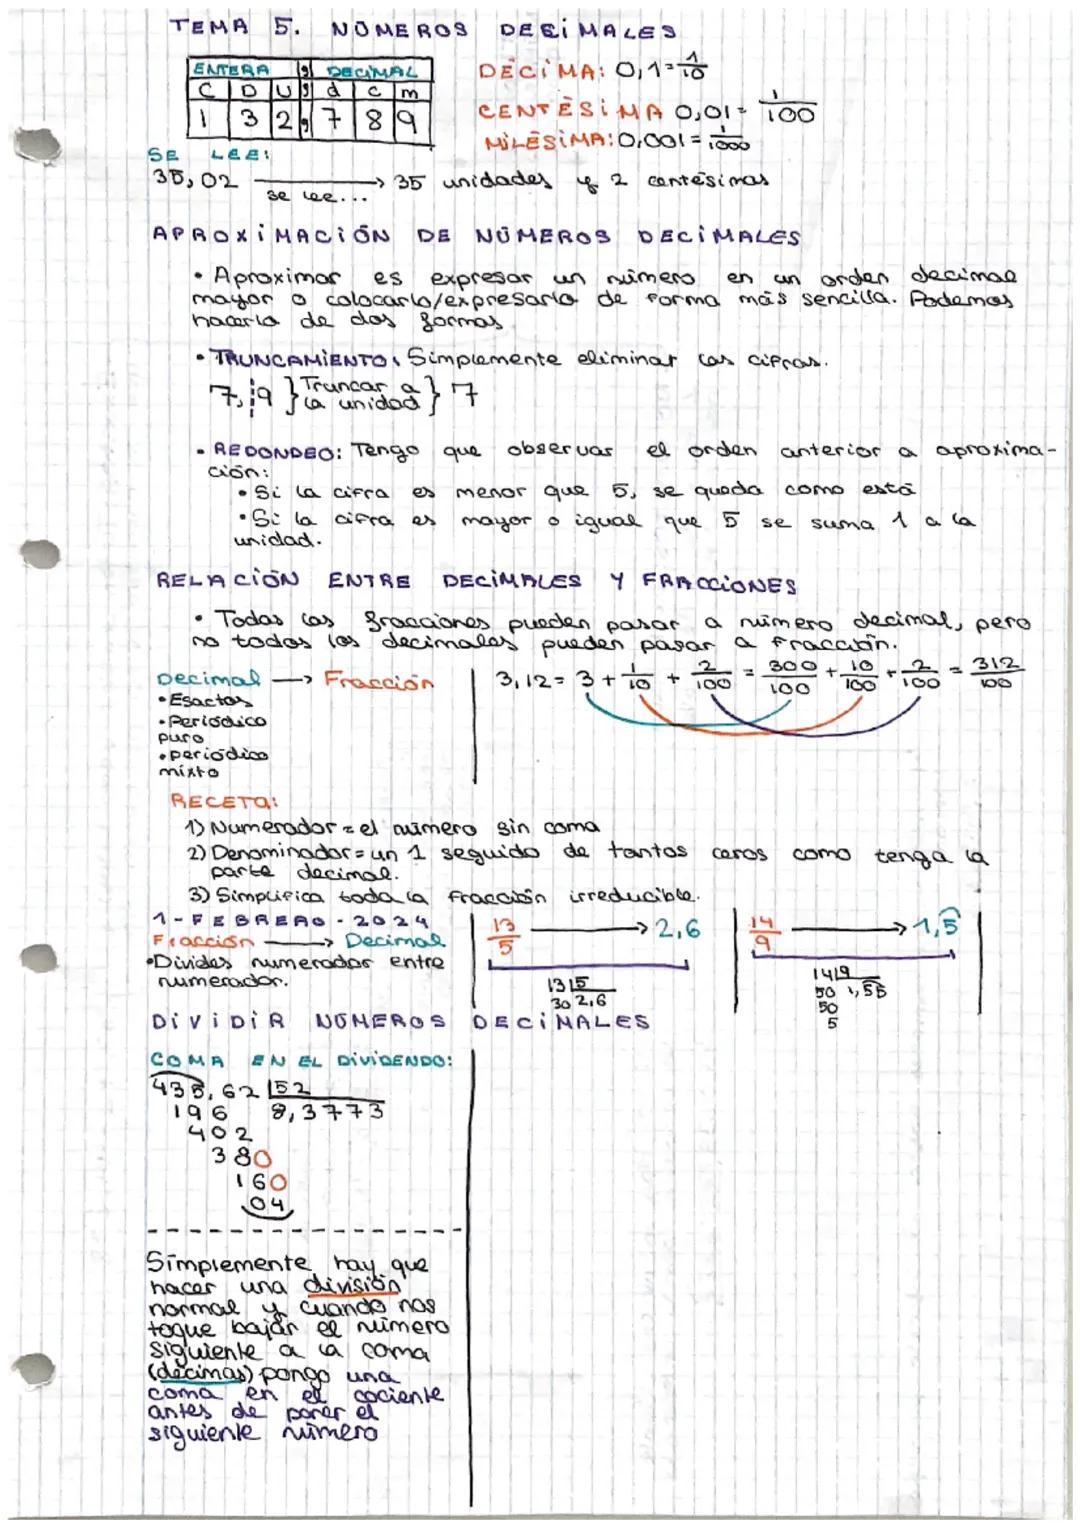 TEMA 5. NÚMEROS DECIMALES
ENTERA , DECIMAL
C D U , d c m
1 3 2 , 7 8 9
DÉCIMA: 0,1=1/10
CENTÉSIMA 0,01= 1/100
MILÉSIMA: 0,001=1/1000
SE LEE:
35,02 se lee... → 35 unidades y 2 centésimas
APROXIMACIÓN DE NÚMEROS DECIMALES
• Aproximar es expresar un número en un orden decimal
mayor o colocarlo/expresarlo de forma más sencilla. Podemos
hacerlo de dos formas
• TRUNCAMIENTO: Simplemente eliminar las cifras.
7,¦9 } Truncar a la unidad } 7
• REDONDEO: Tengo que observar el orden anterior a aproxima-
ción:
• Si la cifra es menor que 5, se queda como está
• Si la cifra es mayor o igual que 5 se suma 1 a la
unidad.
RELACIÓN ENTRE DECIMALES Y FRACCIONES
• Todas las fracciones pueden pasar a número decimal, pero
no todos los decimales pueden pasar a fracción.
Decimal → Fracción
• Esactos
• Periódico
puro
• periódico
mixto
3,12= 3 + 1/10 + 2/100 = 300/100 + 10/100 + 2/100 = 312/100
RECETA:
1) Numerador = el número sin coma
2) Denominador = un 1 seguido de tantos ceros como tenga la
parte decimal.
3) Simplifica toda la fracción irreducible.
1-FEBRERO-2024
Fracción → Decimal
• Divides numerador entre
numerador.
13/5 → 2,6
13 |5
30 2,6
14/9 → 1,5̂
14 |9
50 1,55
50
5
DIVIDIR NÚMEROS DECIMALES
COMA EN EL DIVIDENDO:
435,62 |52
196 8,3773
402
380
160
04
Simplemente hay que
hacer una división
normal y cuando nos
toque bajar el número
siguiente a la coma
(décimas) pongo una
coma en el cociente
antes de poner el
siguiente número